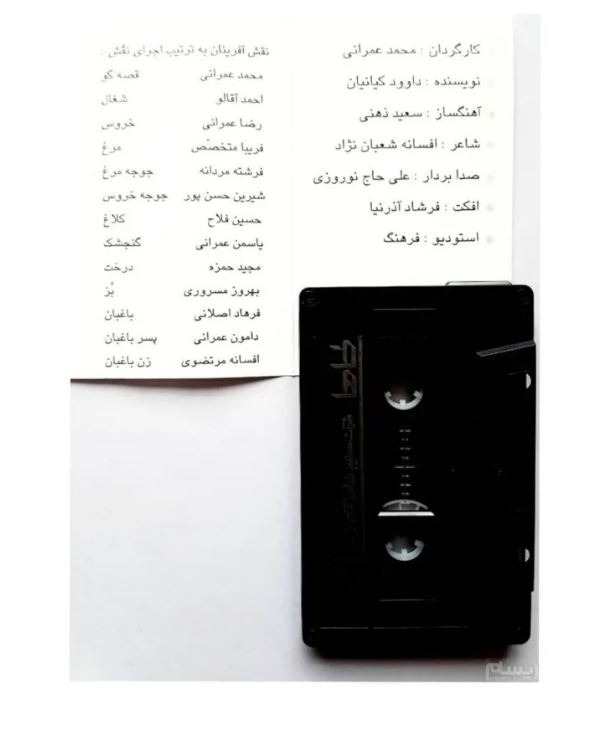 کارگردان : محمد عمرانی
نویسنده : داوود کیانیان
آهنگساز : سعید ذهنی
شاعر : افسانه شعبان نژاد
صدا بردار : علی حاج نوروزی
افکت : فرشاد آذرنیا
استودیو : فرهنگ
نقش آفرینان به ترتیب اجرای نقش :
محمد عمرانی قصه گو
احمد آقالو شغال
رضا عمرانی خروس
فریبا متخصص مرغ
فرشته مردانه جوجه مرغ
شیرین حسن پور جوجه خروس
حسین فلاح کلاغ
یاسمن عمرانی گنجشک
مجید حمزه درخت
بهروز مسروری بُز
فرهاد اصلانی باغبان
دامون عمرانی پسر باغبان
افسانه مرتضوی زن باغبان
ایسام